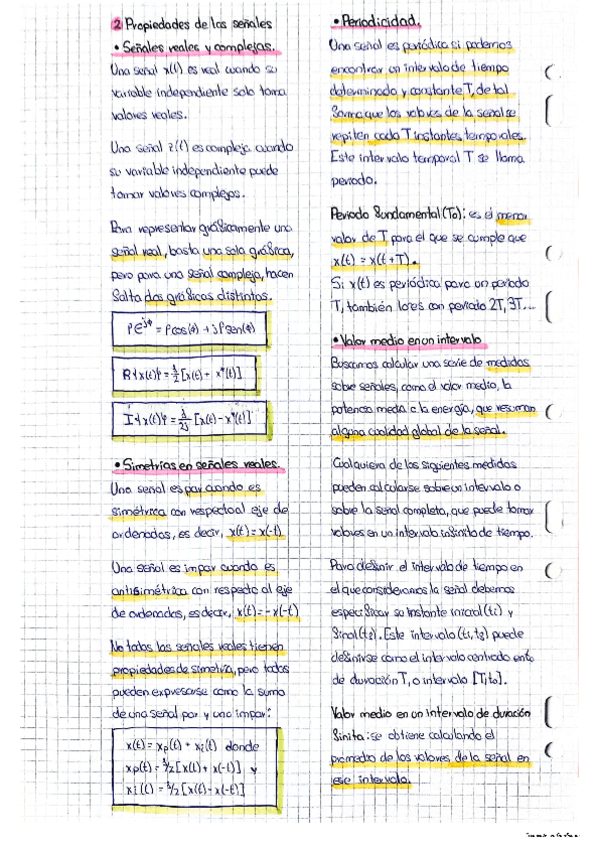 2 Propiedades de las señales
• Señales reales y complejas.
Una señal x(t) es real cuando su
variable independiente solo toma
valores reales.
Una señal z(t) es compleja cuando
su variable independiente puede
tomar valores complejos.
Para representar gráficamente una
señal real, basta una sola gráfica,
pero para una señal compleja, hacen
falta dos gráficas distintas.
ρe^{jφ} = ρcos(φ) + jρsen(φ)
R{x(t)} = 1/2 [x(t) + x*(t)]
I{x(t)} = 1/2j [x(t) - x*(t)]
• Simetrías en señales reales.
Una señal es par cuando es
simétrica con respecto al eje de
ordenadas, es decir, x(t) = x(-t)
Una señal es impar cuando es
antisimétrica con respecto al eje
de ordenadas, es decir, x(t) = -x(-t)
No todas las señales reales tienen
propiedades de simetría, pero todas
pueden expresarse como la suma
de una señal par y una impar:
x(t) = xp(t) + xi(t) donde
xp(t) = 1/2 [x(t) + x(-t)] y
xi(t) = 1/2 [x(t) - x(-t)]
• Periodicidad.
Una señal es periódica si podemos
encontrar un intervalo de tiempo
determinado y constante T, de tal
forma que los valores de la señal se
repiten cada T instantes temporales.
Este intervalo temporal T se llama
periodo.
Periodo fundamental (To): es el menor
valor de T para el que se cumple que
x(t) = x(t+T).
Si x(t) es periódica para un periodo
T, también lo es con periodo 2T, 3T...
• Valor medio en un intervalo
Buscamos calcular una serie de medidas
sobre señales, como el valor medio, la
potencia media o la energía, que resuman
alguna cualidad global de la señal.
Cualquiera de las siguientes medidas
pueden calcularse sobre un intervalo o
sobre la señal completa, que puede tomar
valores en un intervalo infinito de tiempo.
Para definir el intervalo de tiempo en
el que consideramos la señal debemos
especificar su instante inicial (t1) y
final (t2). Este intervalo (t1, t2) puede
definirse como el intervalo centrado en to
de duración T, o intervalo [T, to].
Valor medio en un intervalo de duración
finita: se obtiene calculando el
promedio de los valores de la señal en
ese intervalo.